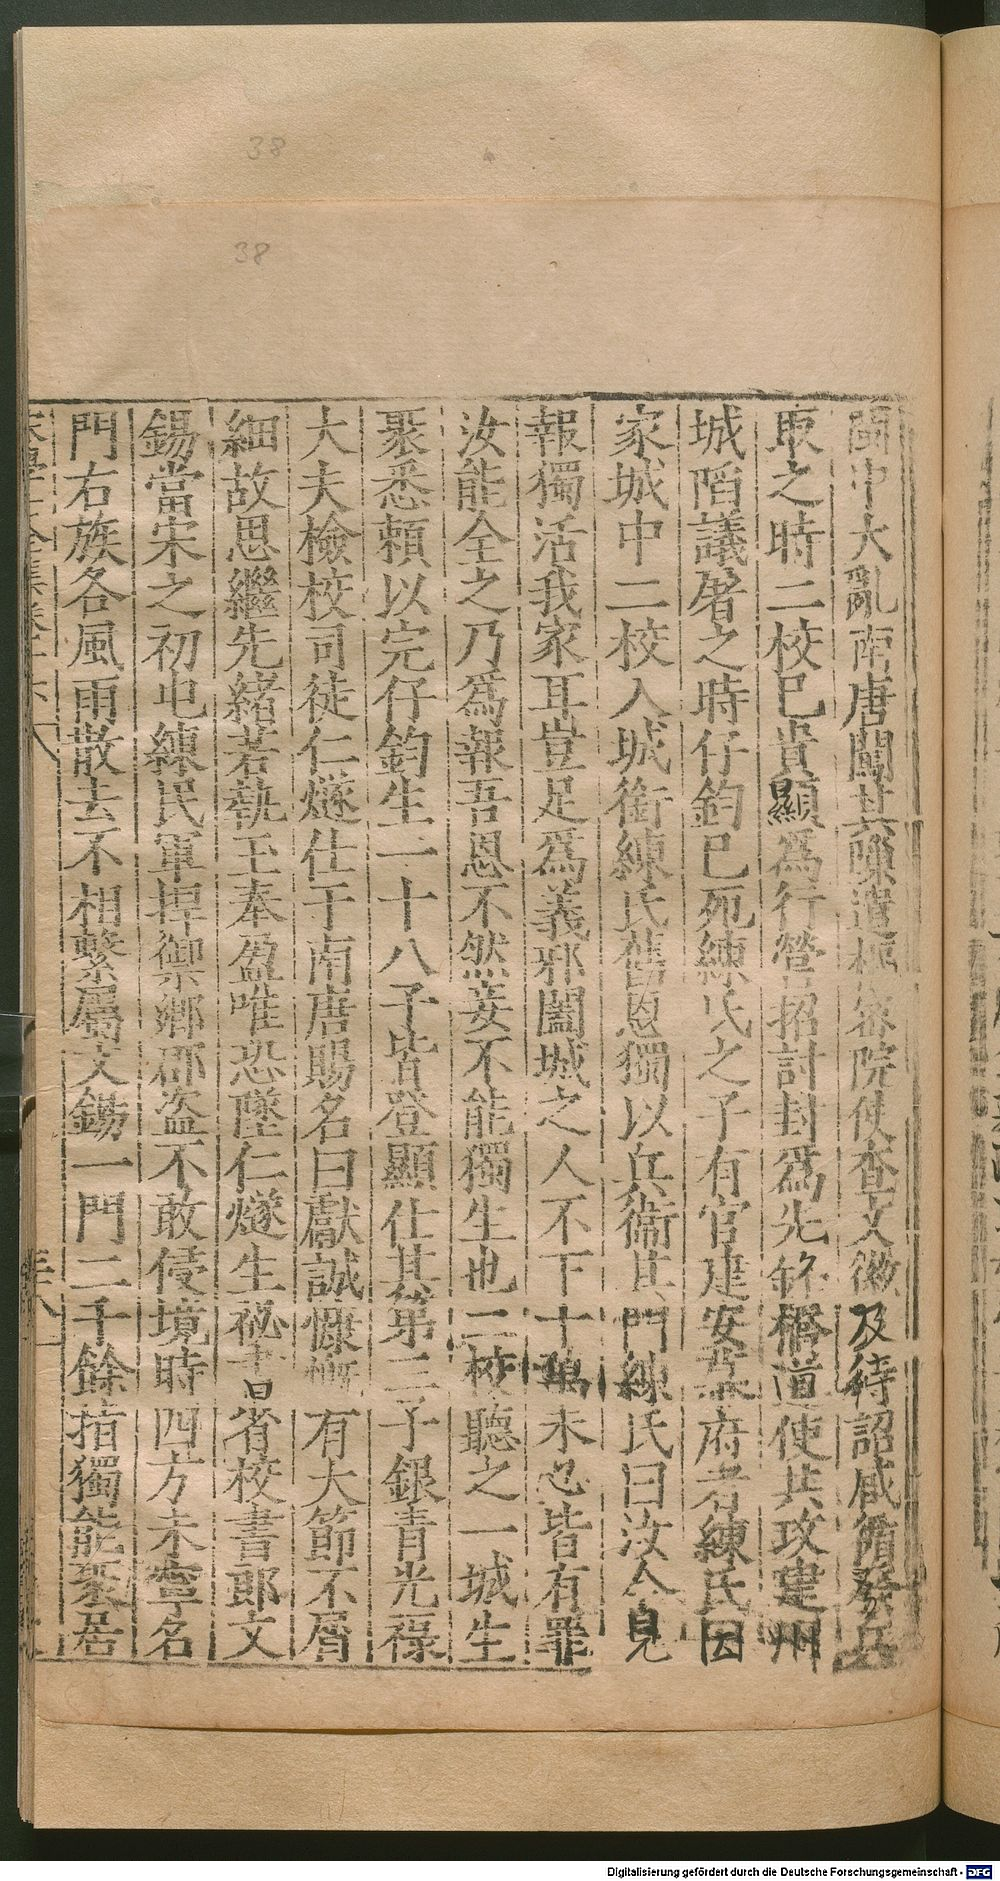 38
38
閩中大亂南唐闖其隙遣樞密院使查文徽及待詔咸循發兵
取之時二校已貴顯為行營招討封為先鋒橋道使共攻建州
城陷議屠之時仔鈞已死練氏之子有官建安幕府者練氏因
家城中二校入城銜練氏舊恩獨以兵衞其門練氏曰汝今見
報獨活我家耳豈足為義邪闔城之人不下十萬未必皆有罪
汝能全之乃為報吾恩不然妾不能獨生也二校聽之一城生
聚悉頼以完仔鈞生一十八子皆登顯仕其第二子銀青光祿
大夫檢校司徒仁燧仕于南唐賜名曰獻誠慷慨有大節不屑
細故思繼先緒若執玉奉盈唯恐墜仁燧生祕書省校書郎文
錫當宋之初屯練民軍捍禦鄉郡盜不敢侵境時四方未寧名
門右族各風雨散去不相繫屬文錫一門二千餘指獨能聚居
宋學士全集卷
三十八
Digitalisierung gefördert durch die Deutsche Forschungsgemeinschaft - DFG